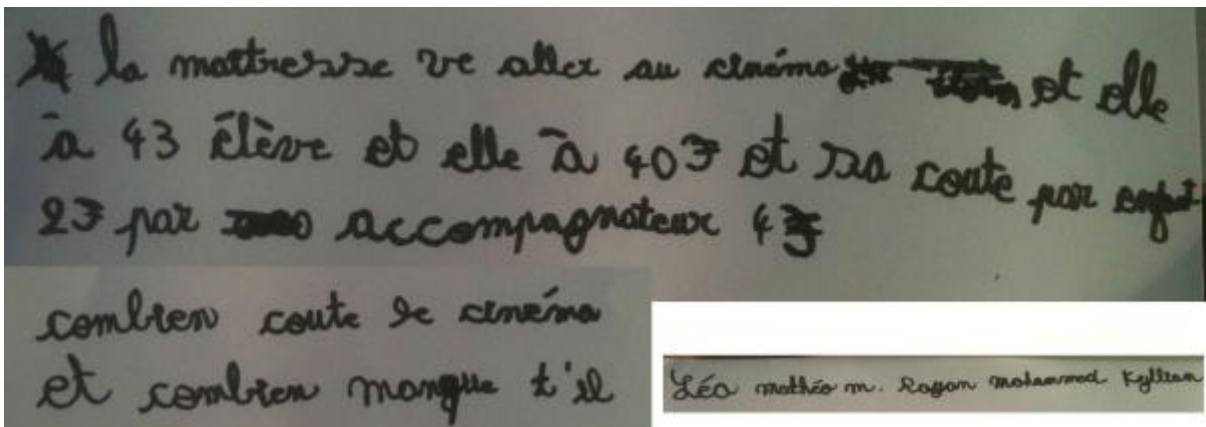 la mattresse ve aller au cinéma et elle
à 43 élève et elle à 40 € et sa coute par enfant
2 € par accompagnateur 4 €
combien coute le cinéma
et combien manque t'il
Léo mathéo m. Rayan mohammed Kyllian